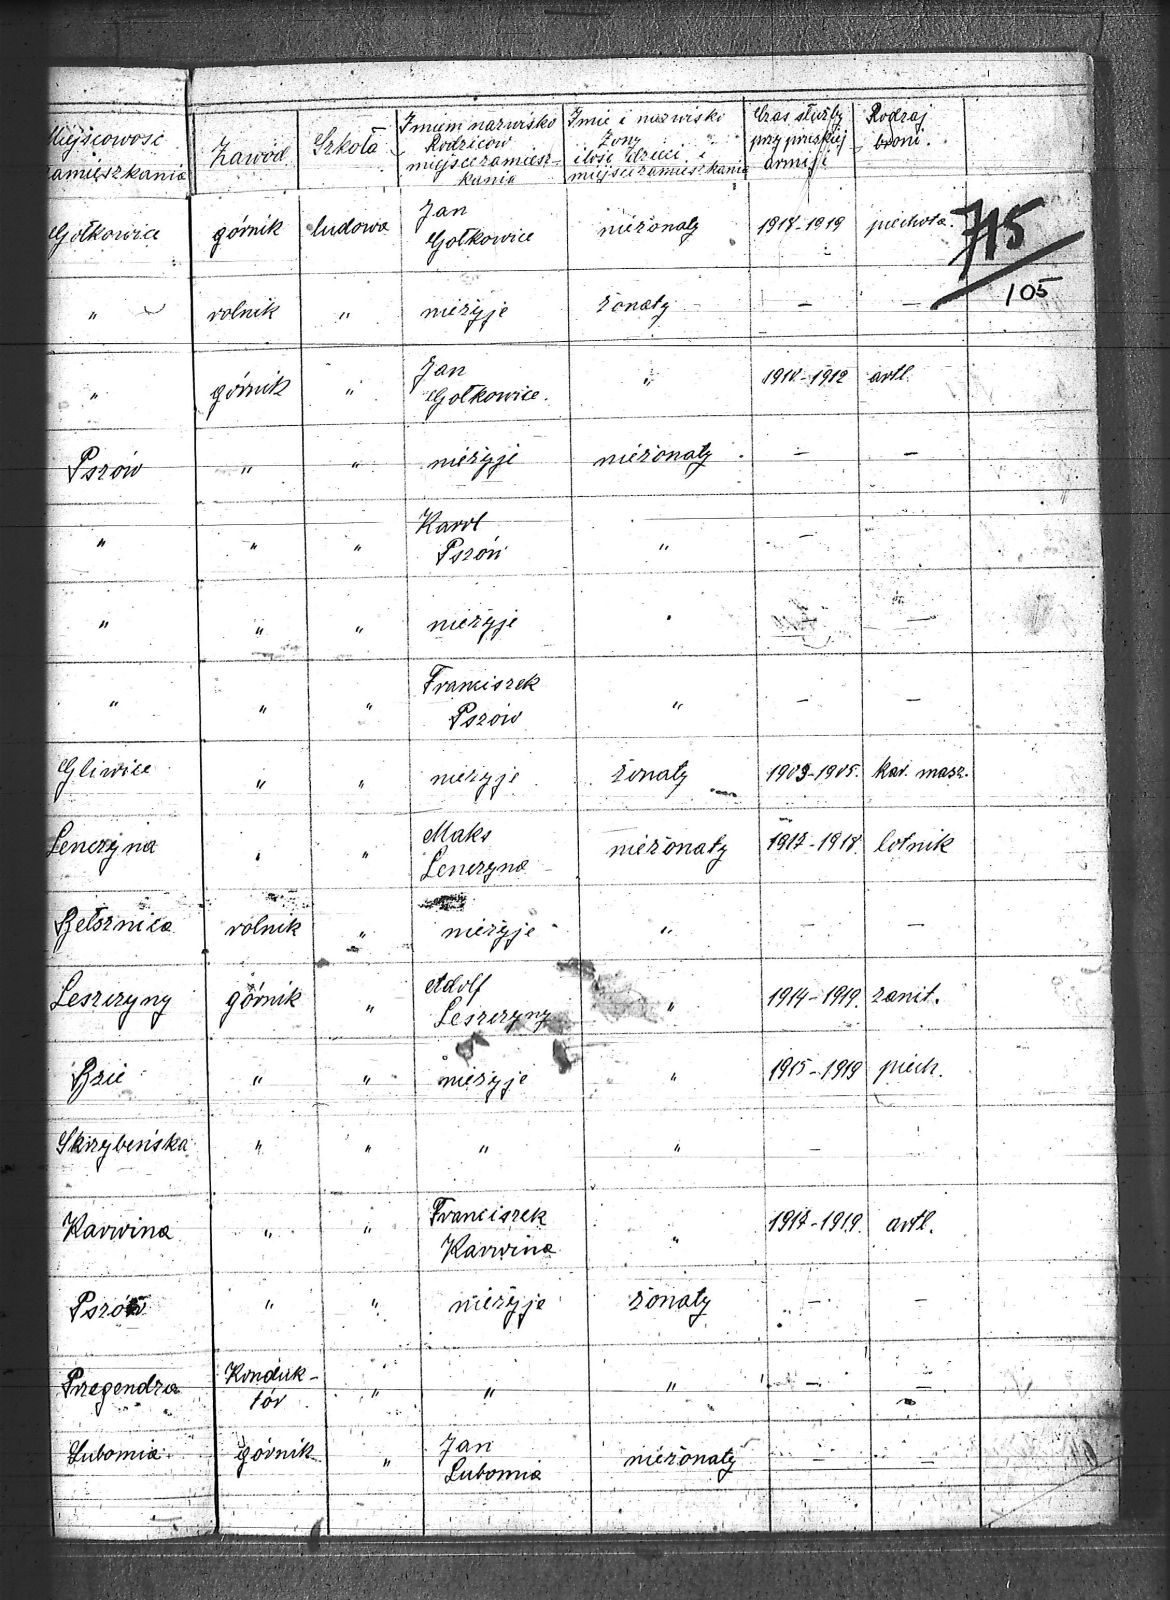 Miejscowość zamieszkania Zawód Szkoła Imiem nazwisko Rodziców miejsce zamieszkania Imie i nazwisko Żony ilość dzieci i miejsce zamieszkania Czas służby przy pruskiej armiji Rodzaj broni.
715
105
Gołkowice górnik ludowa Jan Gołkowice nieżonaty 1918-1919 piechota.
" rolnik " nieżyje żonaty — —
" górnik " Jan Gołkowice. " 1911-1912 artl.
Pszów " " nieżyje nieżonaty. — —
" " " Karol Pszów " —
" " " nieżyje " —
" " " Franciszek Pszów " — —
Gliwice " " nieżyje żonaty 1903-1905. kar. masz.
Lenczyna " " Maks Lenczyna nieżonaty 1917-1918. lotnik
Bełsznica rolnik " nieżyje " — —
Leszczyny górnik " Adolf Leszczyny " 1914-1919. zanit.
Bzie " " nieżyje " 1915-1919 piech.
Skrzybeńska " " " " —
Karwina " " Franciszek Karwina " 1917-1919. artl.
Pszów " " nieżyje żonaty — —
Przegendza Konduktór " " " — —
Lubomia górnik " Jan Lubomia nieżonaty — —